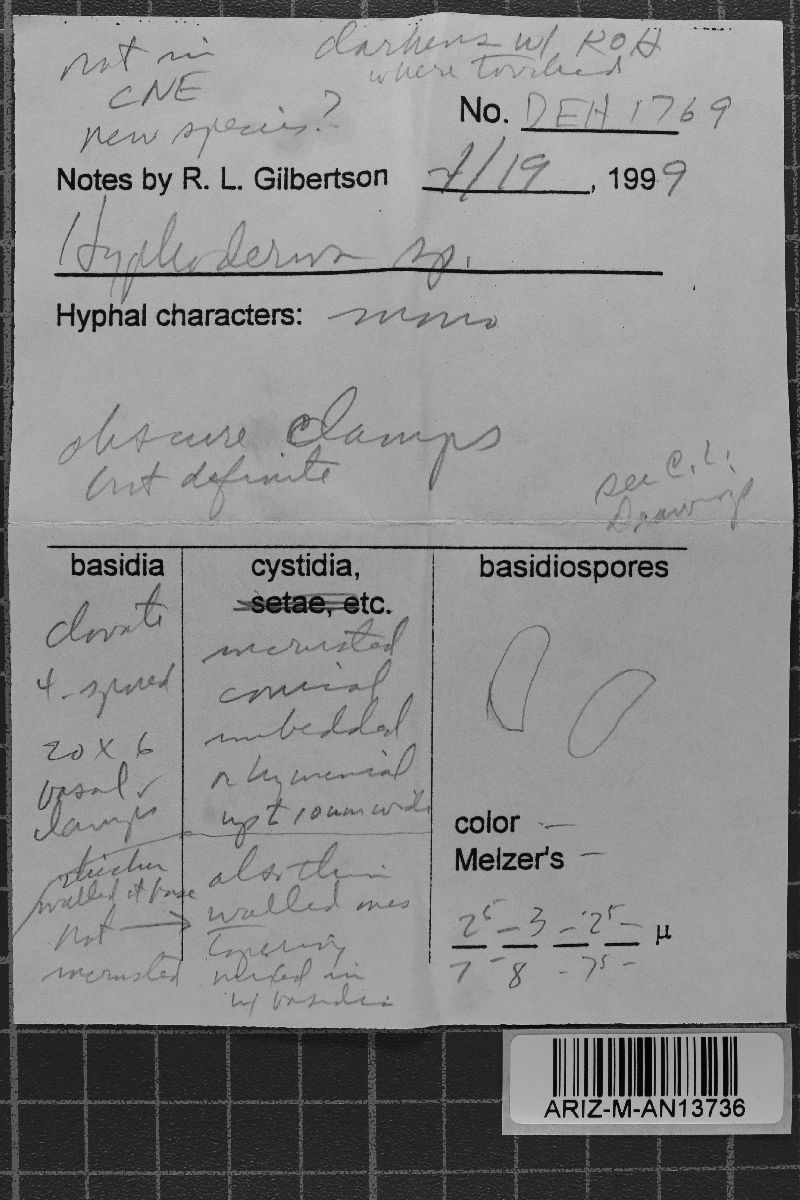 not in
CNE
new species?
darkens w/ KOH
where touched
No. DEH 1769
Notes by R. L. Gilbertson 7/19, 1999
Hyphoderma sp.
Hyphal characters: mono
obscure clamps
but definite
see C.L.
Drawing
basidia
clavate
4-spored
20 x 6
basal
clamps
thicker
walled at base
not →
incrusted
cystidia,
setae, etc.
incrusted
conical
imbedded
or hymenial
up to 10 µm wide
also thin
walled ones
tapering
mixed in
w/ basidia
basidiospores
color —
Melzer's —
2⁵ – 3 – 2⁵ – µ
7 – 8 – 7⁵ –
ARIZ-M-AN13736